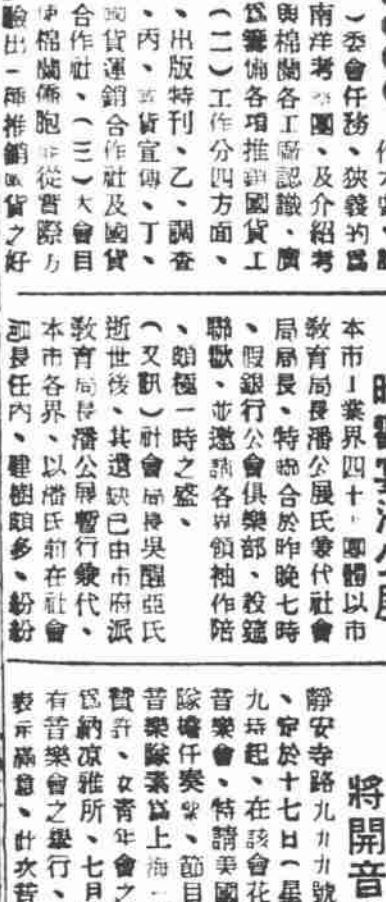 ）委會任務、狹義的爲
南洋考團、及介紹考
與棉蘭各工廠認識、廣
爲籌備各項推銷國貨工
（二）工作分四方面、
、出版特刊、乙、調查
、丙、國貨宣傳、丁、
國貨運銷合作社及國貨
合作社、（三）大會目
棉蘭僑胞從實際方
出一師推銷國貨之好
本市工業界四十團體以市
敎育局長潘公展氏兼代社會
局局長、特聯合於昨晚七時
、假銀行公會俱樂部、設筵
聯歡、並邀請各界領袖作陪
、頗極一時之盛、
（又訊）社會局長吳醒亞氏
逝世後、其遺缺已由市府派
敎育局長潘公展暫行兼代、
本市各界、以潘氏前在社會
局長任內、建樹頗多、紛紛
將開音
靜安寺路九九九號
、定於十七日（星
九時起、在該會花
音樂會、特請美國
隊擔任奏樂、節目
音樂隊素爲上海一
贊許、女靑年會之
爲納凉雅所、七月
有音樂會之舉行、
表示滿意、此次音